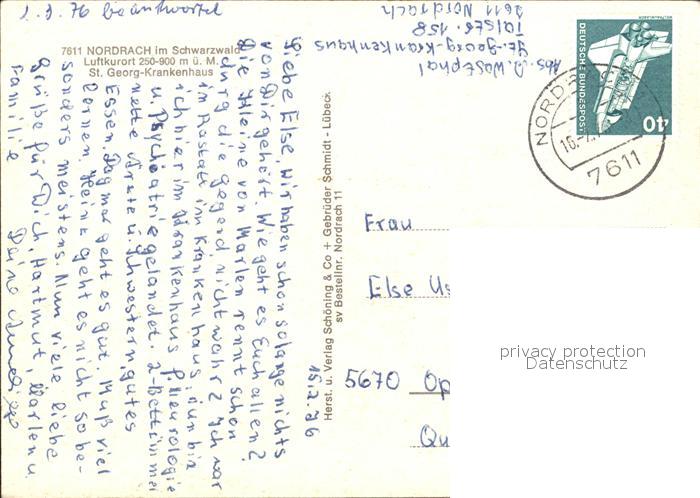 1.3.76 beantwortet
7611 NORDRACH im Schwarzwald
Luftkurort 250-900 m ü. M.
St. Georg-Krankenhaus
Abs. D. Westphal
St.-Georg-Krankenhaus
Talstr. 158
7611 Nordrach
DEUTSCHE BUNDESPOST
40
NORD
16.-2.
7611
15.2.76
Liebe Else, wir haben schon solange nichts
von Dir gehört. Wie geht es Euch allen?
Die Kleine von Marlen rennt schon
durch die gegend, nicht wahr? Ich war
in Rastatt im Krankenhaus, nun bin
ich hier im Krankenhaus Neurologie
u. Psychatrie gelandet. 2-Bettzimmer
nette Ärzte u. Schwestern, gutes
Essen. Dagmar geht es gut. Muß viel
lernen. Heinz geht es nicht so be-
sonders meistens. Nun viele liebe
Grüße für Dich, Hartmut, Marlen u.
Familie
Deine
Herst. u. Verlag Schöning & Co + Gebrüder Schmidt - Lübeck
sv Bestellnr. Nordrach 11
Frau
Else Us
5670 Op
Qu
privacy protection
Datenschutz